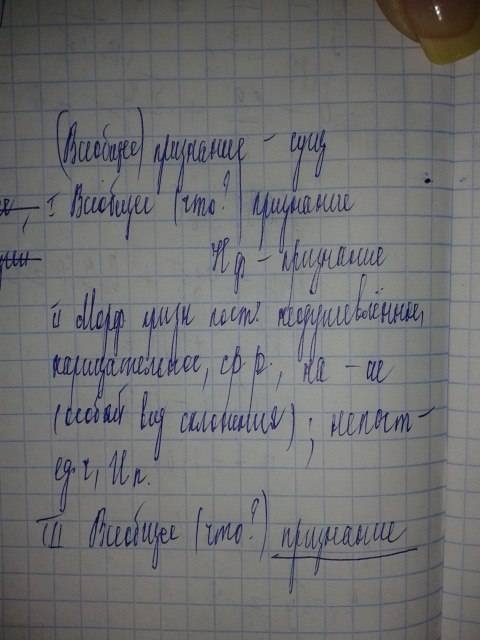 (Всеобщее) признание - сущ
I Всеобщее (что?) признание
Н.ф - признание
II Морф призн пост: неодушевлённое,
нарицательное, ср.р., на - ие
(особый вид склонения); непост -
ед.ч, И.п.
III Всеобщее (что?) признание